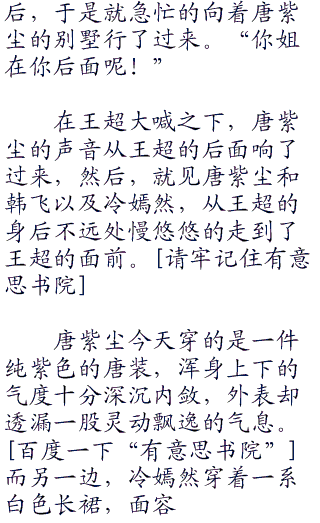 后，于是就急忙的向着唐紫
尘的别墅行了过来。“你姐
在你后面呢！”
在王超大喊之下，唐紫
尘的声音从王超的后面响了
过来，然后，就见唐紫尘和
韩飞以及冷嫣然，从王超的
身后不远处慢悠悠的走到了
王超的面前。[请牢记住有意
思书院]
唐紫尘今天穿的是一件
纯紫色的唐装，浑身上下的
气度十分深沉内敛，外表却
透漏一股灵动飘逸的气息。
[百度一下“有意思书院”]
而另一边，冷嫣然穿着一系
白色长裙，面容